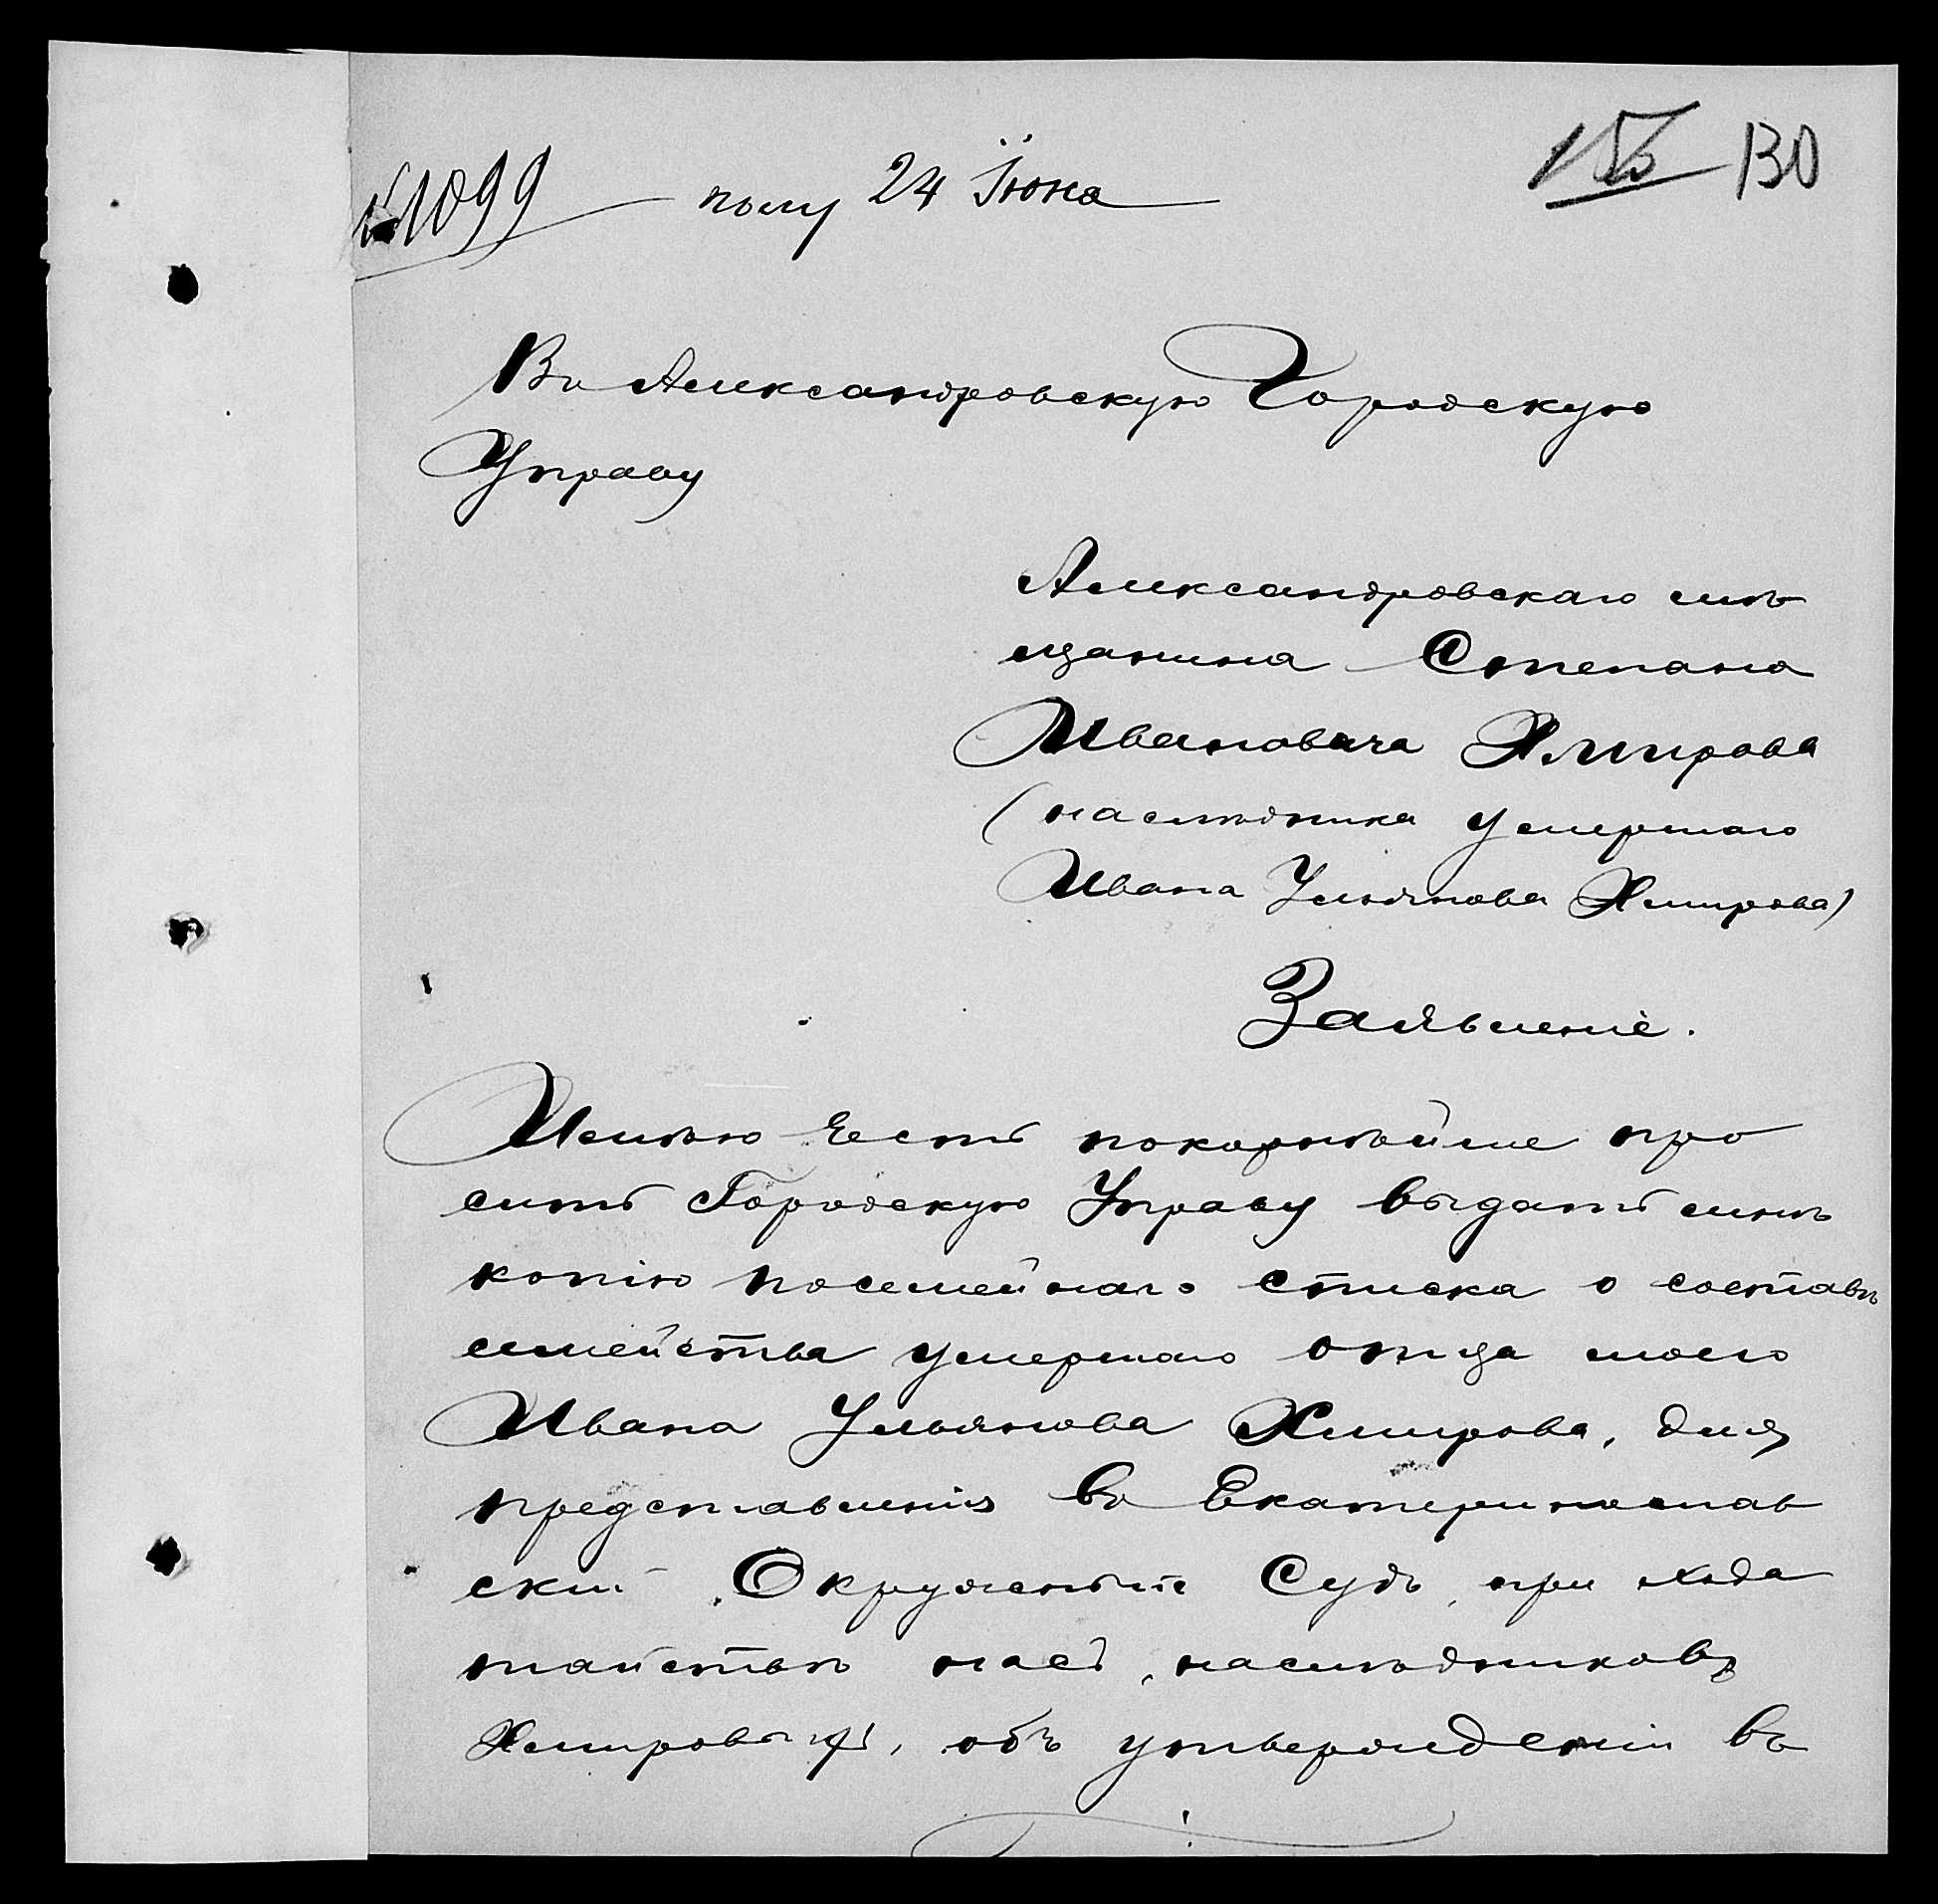 №1099 полу 24 Іюня 130
Въ Александровскую Городскую
Управу
Александровскаго мѣ
щанина Степана
Ивановича Хмирова
(наслѣдника умершаго
Ивана Ульянова Хмирова)
Заявленіе.
Имѣю честь покорнѣйше про
сить Городскую Управу выдать мнѣ
копію посемейнаго списка о составѣ
семейства умершаго отца моего
Ивана Ульянова Хмирова, для
представленія въ Екатеринослав
скій Окружный Судъ, при хода
тайствѣ насъ, наслѣдниковъ
Хмировыхъ, объ утвержденіи въ